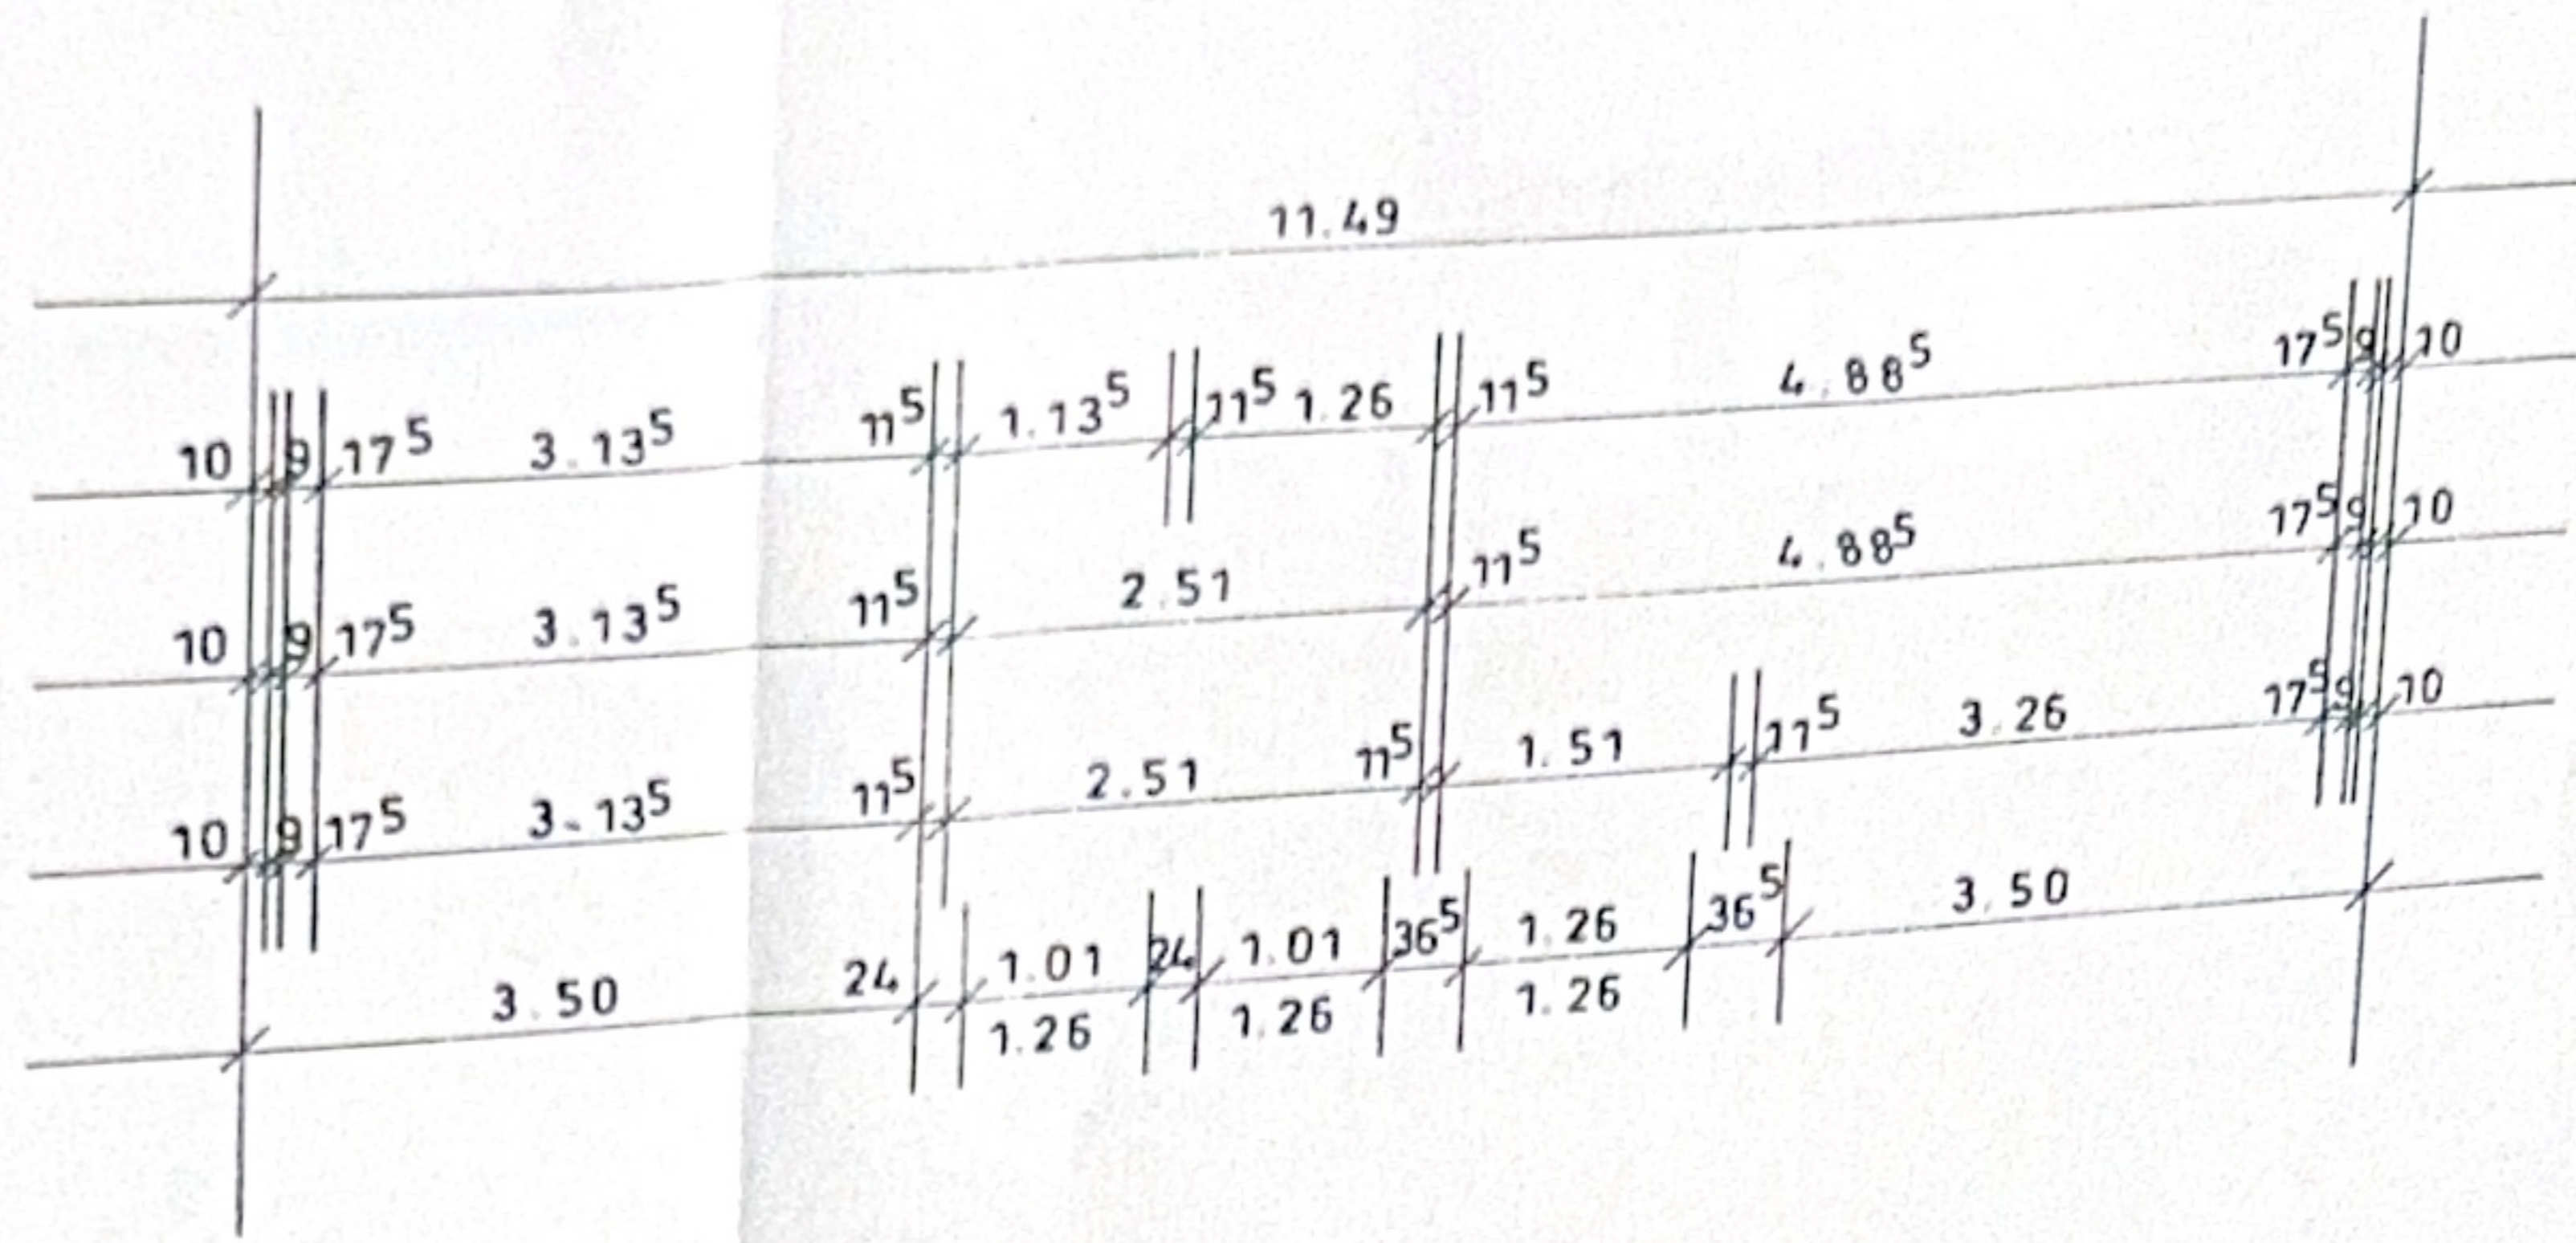 11.49
10 9 17⁵ 3.13⁵ 11⁵ 1.13⁵ 11⁵ 1.26 11⁵ 4.88⁵ 17⁵ 9 10
10 9 17⁵ 3.13⁵ 11⁵ 2.51 11⁵ 4.88⁵ 17⁵ 9 10
10 9 17⁵ 3.13⁵ 11⁵ 2.51 11⁵ 1.51 11⁵ 3.26 17⁵ 9 10
3.50 24 1.01 24 1.01 36⁵ 1.26 36⁵ 3.50
1.26 1.26 1.26